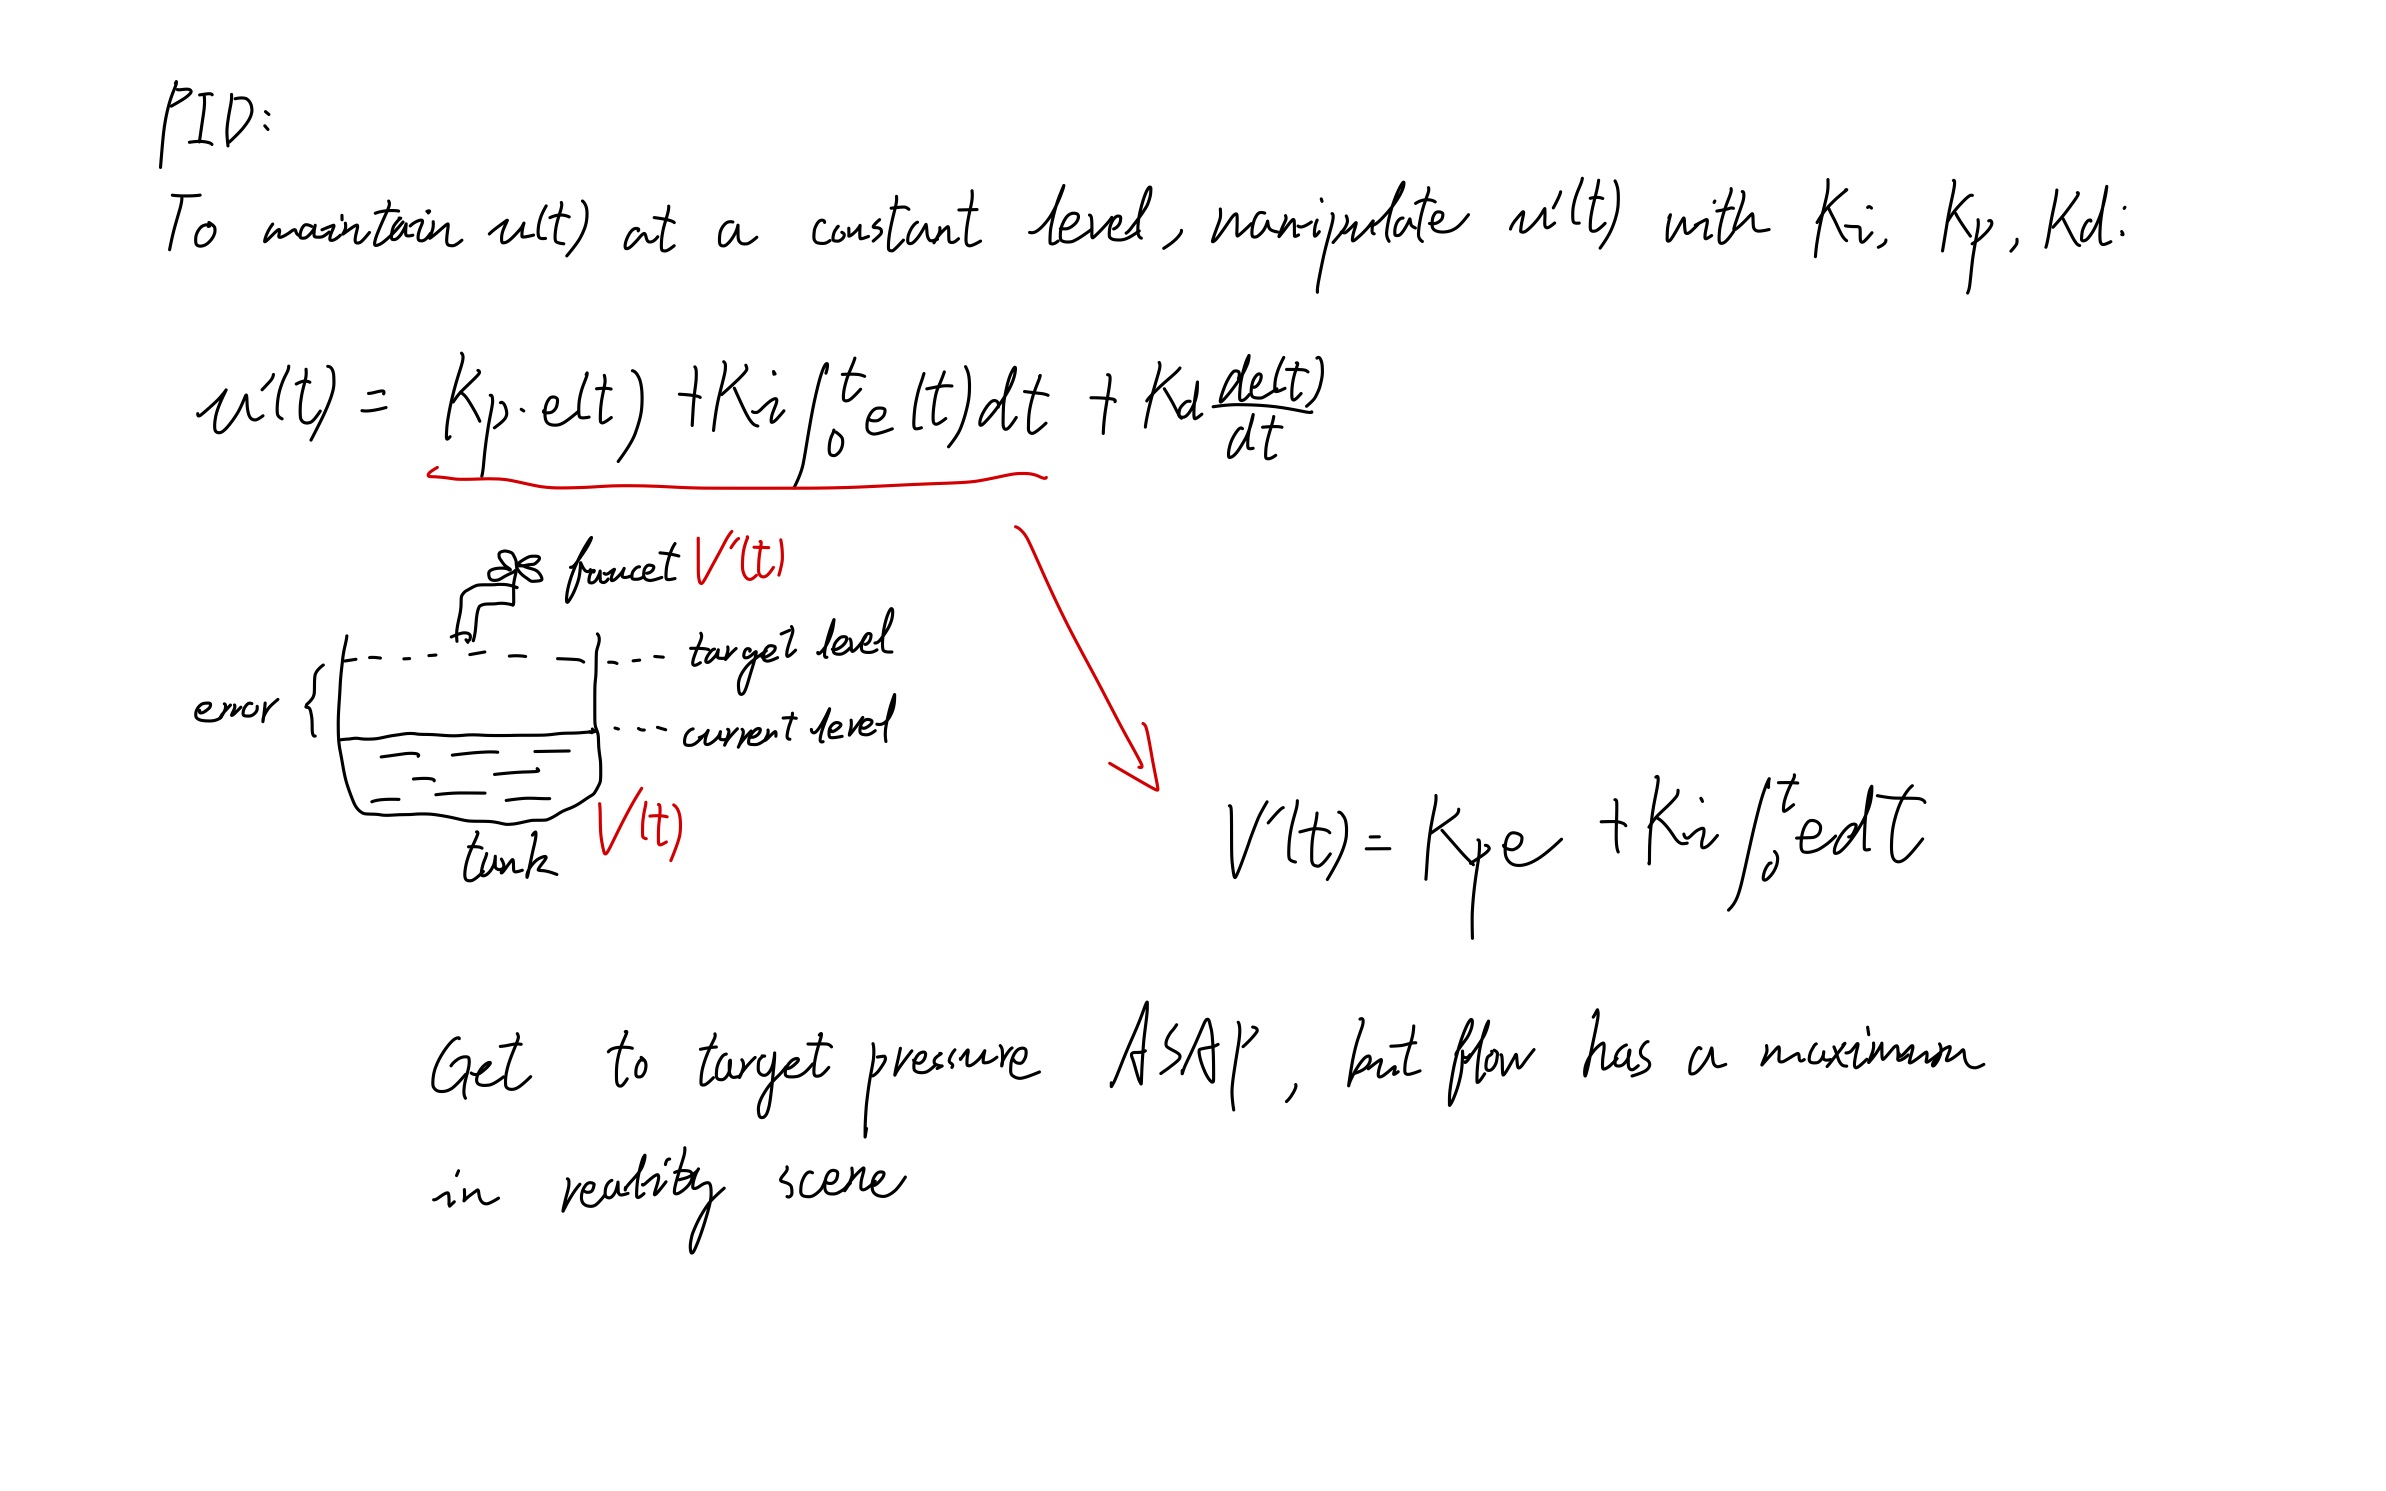 PID:
To maintain u(t) at a constant level, manipulate u'(t) with Ki, Kp, Kd:
u'(t) = Kp · e(t) + Ki ∫₀ᵗ e(t)dt + Kd de(t)/dt
faucet V'(t)
target level
error
current level
V(t)
tank
V'(t) = Kp e + Ki ∫₀ᵗ edt
Get to target pressure ASAP, but flow has a maximum
in reality scene